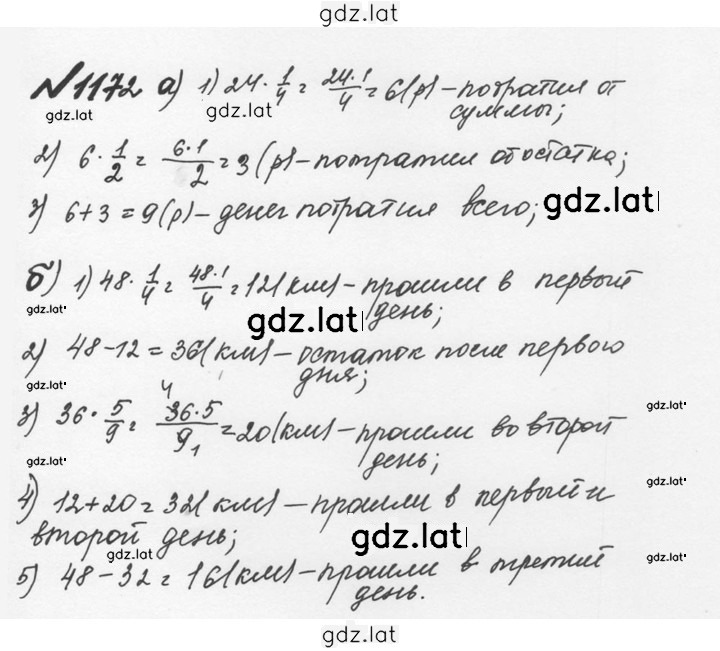 gdz.lat
№1172 а) 1) 24·1/4 = 24·1/4 = 6(р) - потратил от
gdz.lat gdz.lat
суммы;
2) 6·1/2 = 6·1/2 = 3 (р) - потратил от остатка;
3) 6+3 = 9(р) - денег потратил всего; gdz.lat
б) 1) 48·1/4 = 48·1/4 = 12(км) - прошли в первый
gdz.lat gdz.lat день;
2) 48-12 = 36(км) - остаток после первого
gdz.lat дня;
3) 36·5/9 = 4 36·5/9 1 = 20(км) - прошли во второй
gdz.lat
gdz.lat день;
4) 12+20 = 32(км) - прошли в первый и
gdz.lat
второй день; gdz.lat
gdz.lat
5) 48-32 = 16(км) - прошли в третий
gdz.lat
день.
gdz.lat